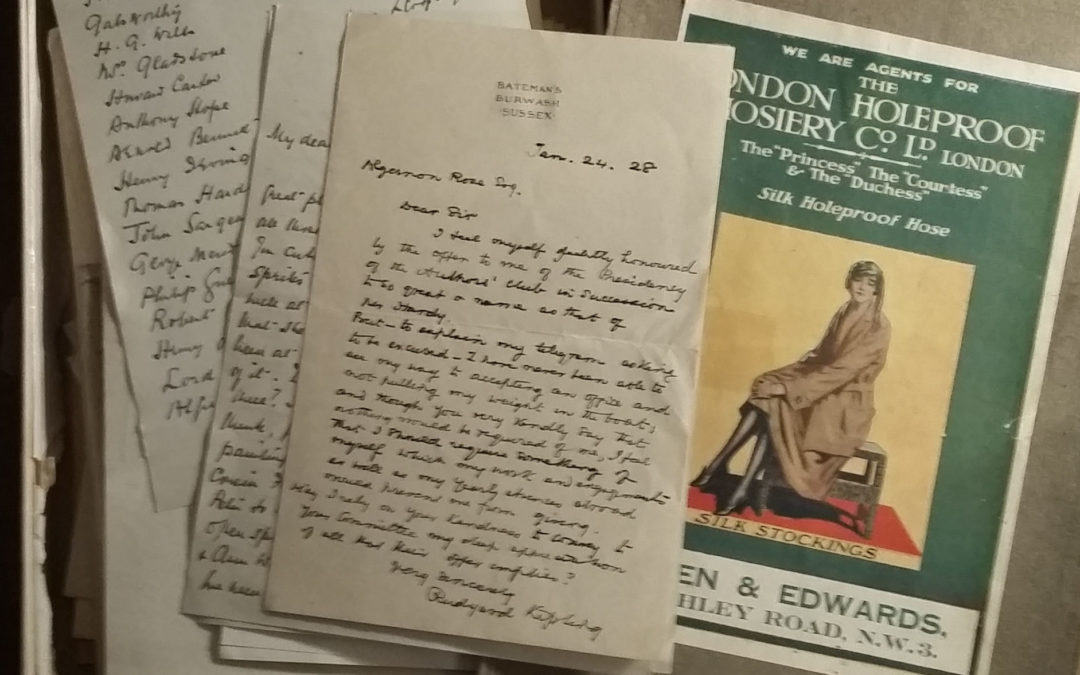 Galsworthy
H. G. Wells
Wm. Gladstone
Howard Carter
Anthony Hope
Arnold Bennet
Henry Irving
Thomas Hard
John Sarge
George
Philip
Robert
Henry
Lord
My dea
all
sprites
been at
of it.
think,
painting
open sp
he been
BATEMAN'S
BURWASH
SUSSEX
Jan. 24. 28
Algernon Rose Esq.
Dear Sir
I feel myself greatly honoured
by the offer to me of the Presidency
of the Authors' Club in succession
to so great a name as that of
Mr Hardy.
But – to explain my telegram asking
to be excused – I have never been able to
see my way to accepting an office and
not pulling my weight in the boat;
and though you very kindly say that
nothing would be required of me, I feel
that I should require something of
myself which my work and engagements
as well as my yearly absences abroad
would prevent me from giving.
May I rely on your kindness to convey to
your Committee my deep appreciation
of all that their offer implies?
Very sincerely
Rudyard Kipling
WE ARE AGENTS FOR
THE
ONDON HOLEPROOF
HOSIERY Co. LD. LONDON
The "Princess", The "Courtess"
& The "Duchess"
Silk Holeproof Hose
SILK STOCKINGS
EN & EDWARDS,
HLEY ROAD, N.W.3.